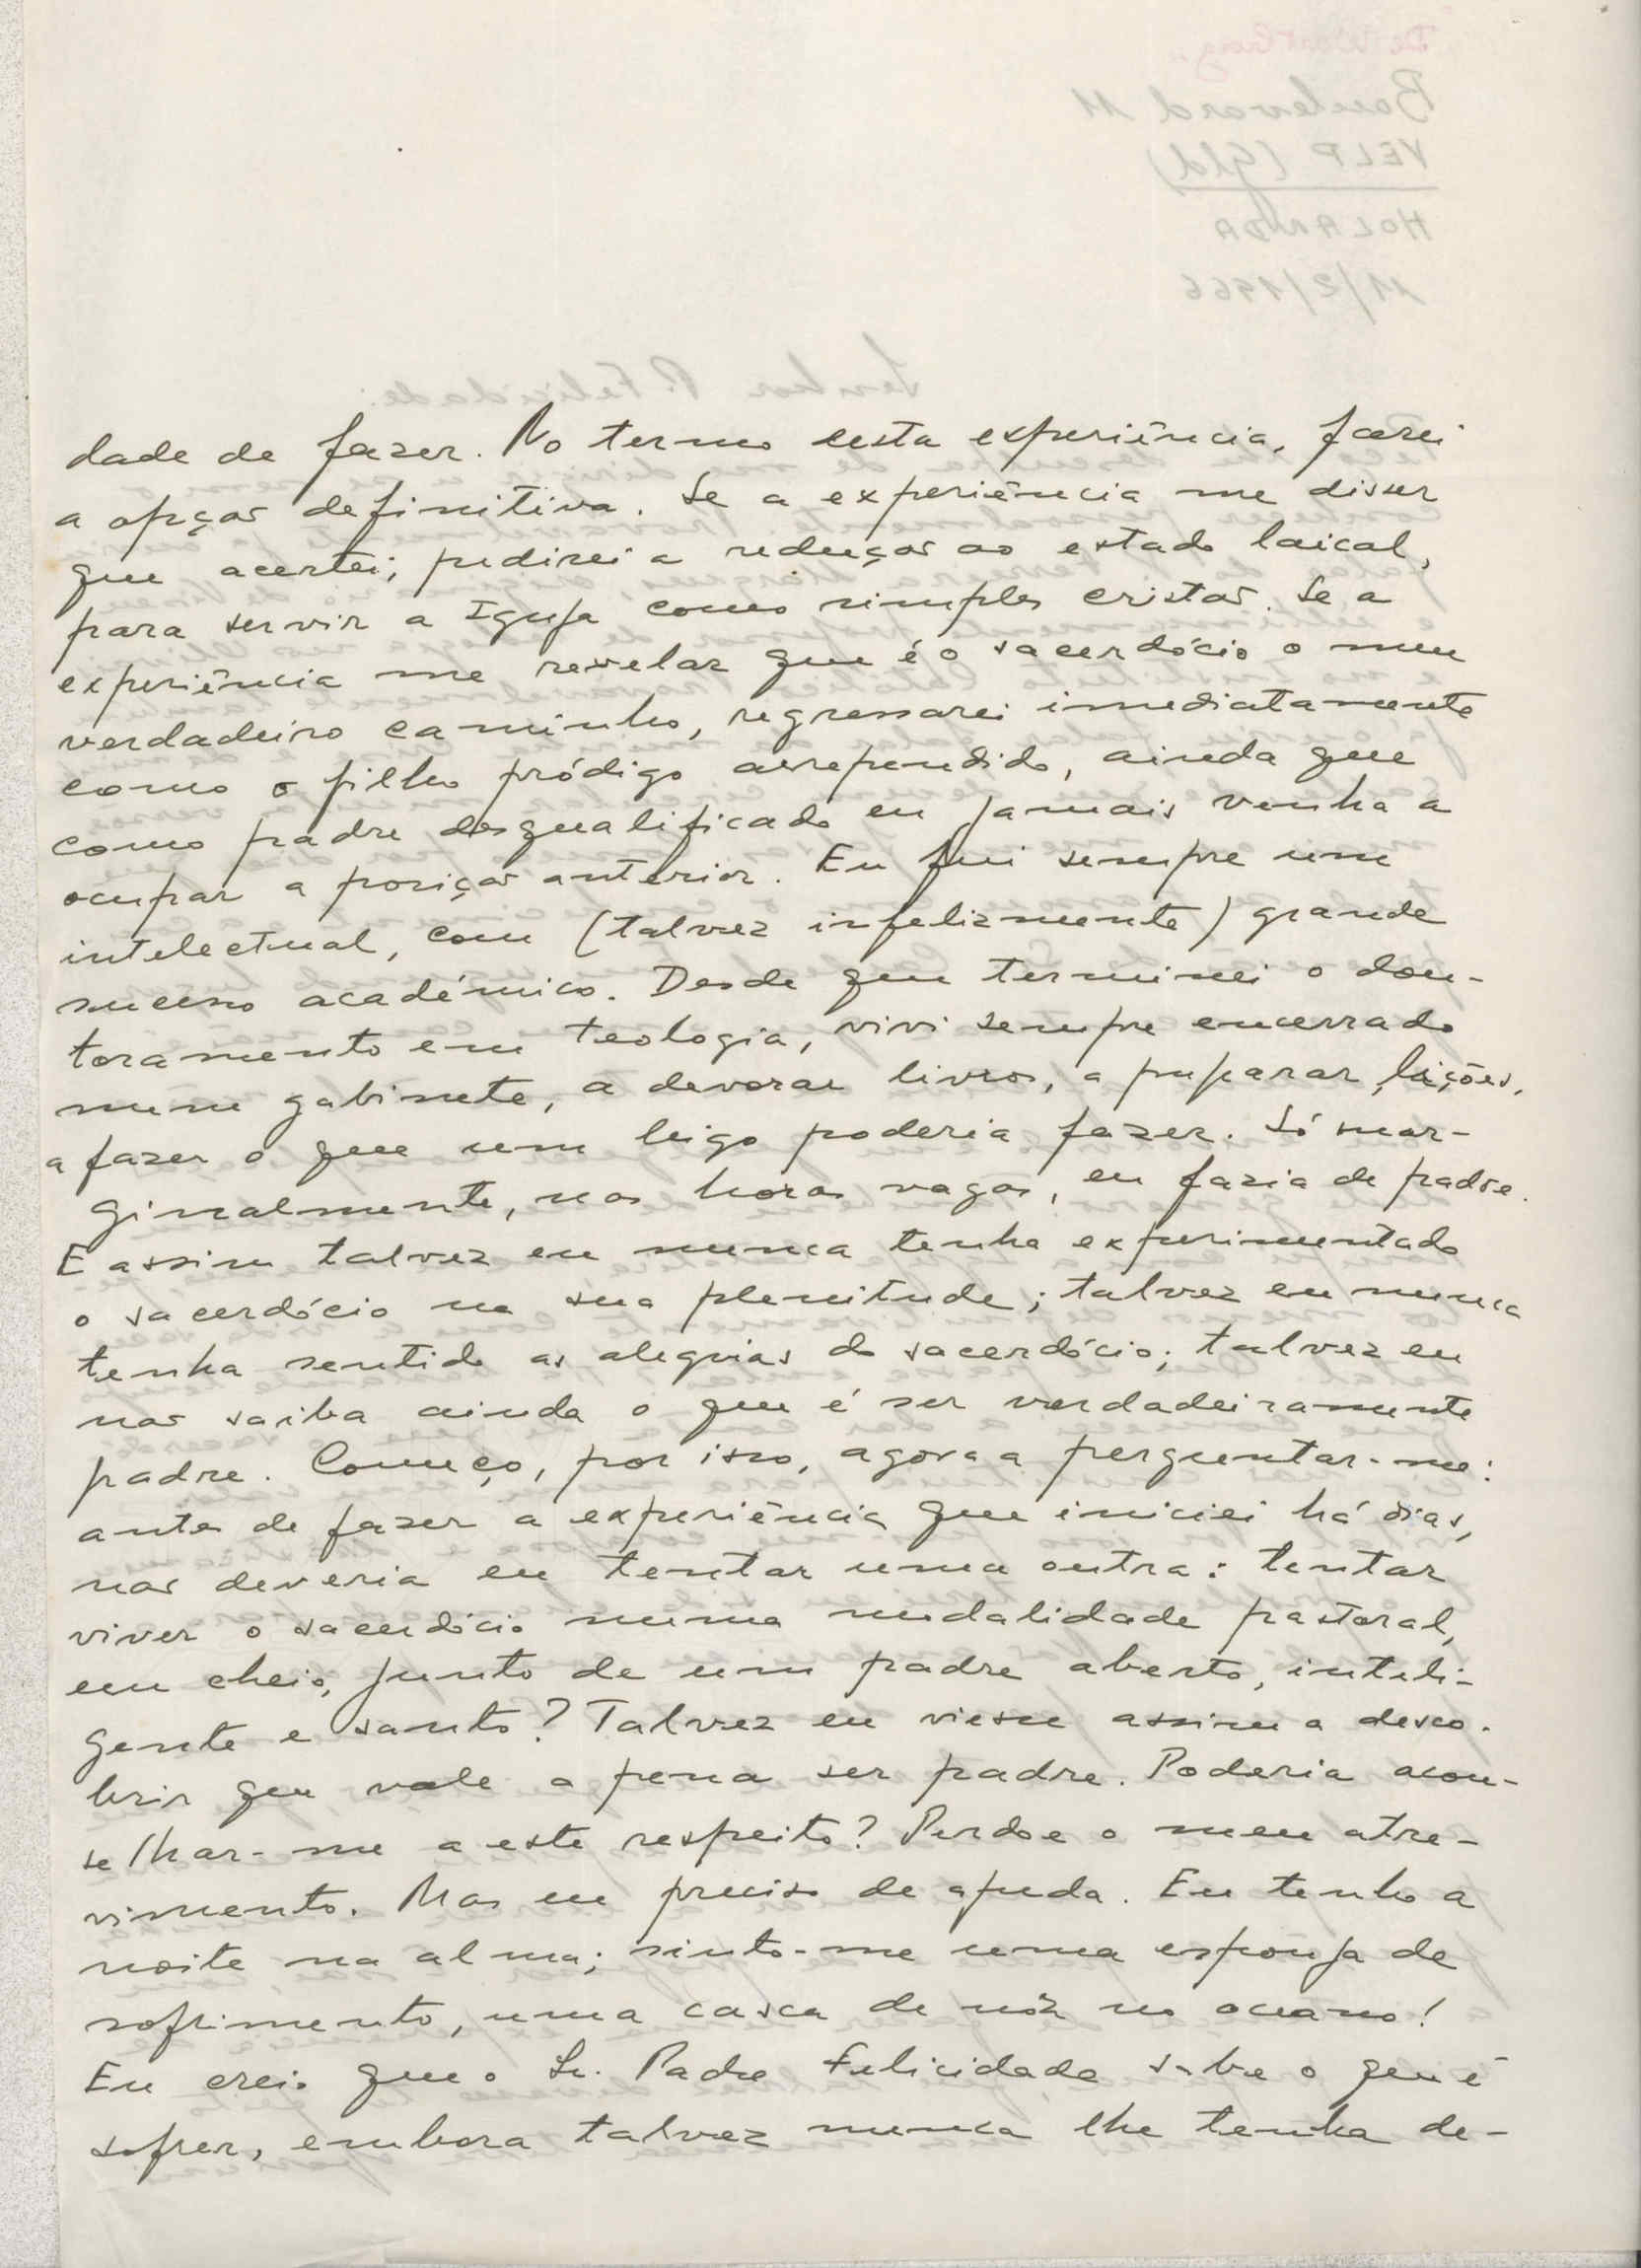 dade de fazer. No termo desta experiência, farei
a opção definitiva. Se a experiência me disser
que acertei, pedirei a redução ao estado laical,
para servir a Igreja como simples cristão. Se a
experiência me revelar que é o sacerdócio o meu
verdadeiro caminho, regressarei imediatamente
como o filho pródigo arrependido, ainda que
como padre desqualificado eu jamais venha a
ocupar a posição anterior. Eu fui sempre um
intelectual, com (talvez infelizmente) grande
sucesso académico. Desde que terminei o dou-
toramento em Teologia, vivi sempre encerrado
num gabinete, a devorar livros, a preparar lições,
a fazer o que um leigo poderia fazer. Só mar-
ginalmente, nas horas vagas, eu fazia de padre.
E assim talvez eu nunca tenha experimentado
o sacerdócio na sua plenitude; talvez eu nunca
tenha sentido as alegrias do sacerdócio; talvez eu
não saiba ainda o que é ser verdadeiramente
padre. Começo, por isso, agora a perguntar-me:
antes de fazer a experiência que iniciei há dias,
não deveria eu tentar uma outra: tentar
viver o sacerdócio numa modalidade pastoral,
em cheio, junto de um padre aberto, inteli-
gente e santo? Talvez eu viesse assim a desco-
brir que vale a pena ser padre. Poderia acon-
selhar-me a este respeito? Perdoe o meu atre-
vimento. Mas eu preciso de ajuda. Eu tenho a
noite na alma; sinto-me uma esponja de
sofrimento, uma casca de nóz no oceano!
Eu creio que o Sr. Padre Felicidade sabe o que é
sofrer, embora talvez nunca lhe tenha de-